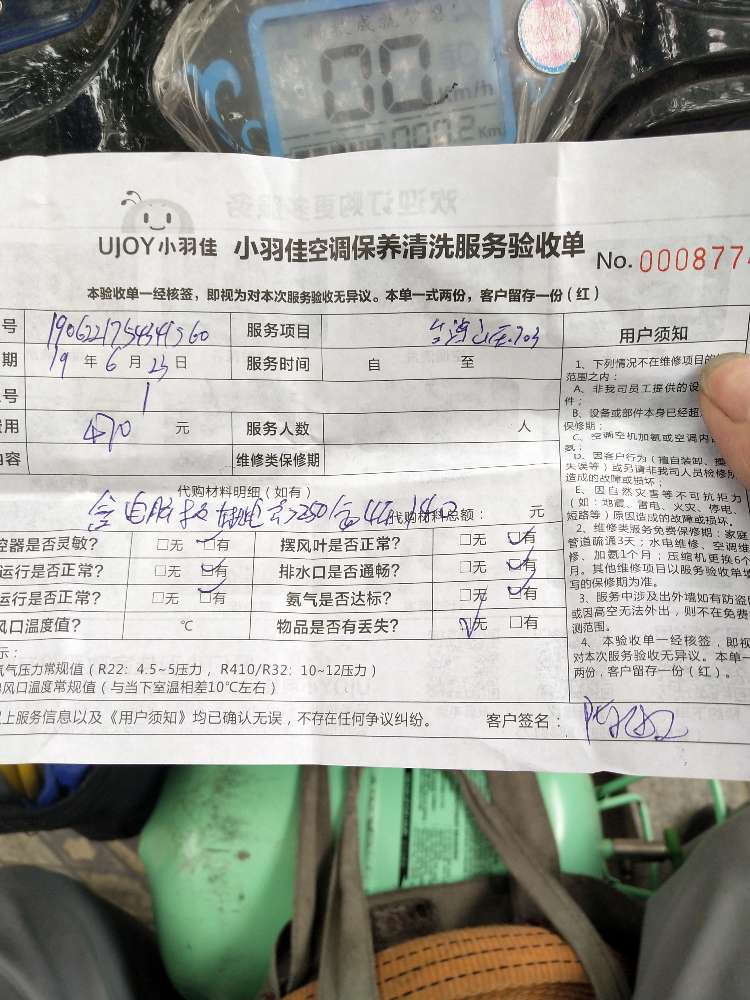 00
Km/h
Km
UJOY小羽佳 小羽佳空调保养清洗服务验收单 No. 000877
本验收单一经核签，即视为对本次服务验收无异议。本单一式两份，客户留存一份（红）
号 服务项目
期 19 年 6 月 23 日 服务时间 自 至
号 1
用 470 元 服务人数 人
内容 维修类保修期
代购材料明细（如有）
代购材料总额： 元
控器是否灵敏？ □无 □有 摆风叶是否正常？ □无 □有
运行是否正常？ □无 □有 排水口是否通畅？ □无 □有
运行是否正常？ □无 □有 氨气是否达标？ □无 □有
风口温度值？ ℃ 物品是否有丢失？ □无 □有
示：
氨气压力常规值（R22：4.5~5压力，R410/R32：10~12压力）
风口温度常规值（与当下室温相差10℃左右）
上服务信息以及《用户须知》均已确认无误，不存在任何争议纠纷。 客户签名：
用户须知
1、下列情况不在维修项目的
范围之内：
A、非我司员工提供的设
件；
B、设备或部件本身已经超
保修期；
C、空调空机加氨或空调内
氨；
D、因客户行为（擅自装卸、操
失误等）或另请非我司人员检修所
造成的故障或损坏；
E、因自然灾害等不可抗拒力
（如：地震、雷电、火灾、停电、
短路等）原因造成的故障或损坏。
2、维修类服务免费保修期：家庭
管道疏通3天；水电维修、空调维
修、加氨1个月；压缩机更换6个
月。其他维修项目以服务验收单填
写的保修期为准。
3、服务中涉及出外墙如有防盗
或因高空无法外出，则不在免费
测范围。
4、本验收单一经核签，即视
对本次服务验收无异议。本单一
两份，客户留存一份（红）。